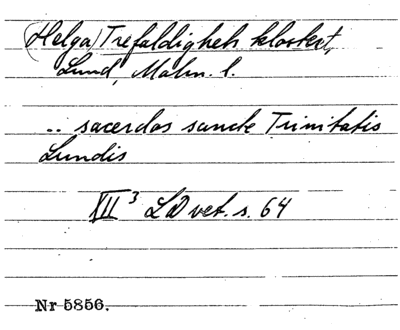 (Helga) Trefaldighets klostret,
Lund, Malm. l.
.. sacerdos sancte Trinitatis
Lundis
XII³ LD vet. s. 64
Nr 5856.